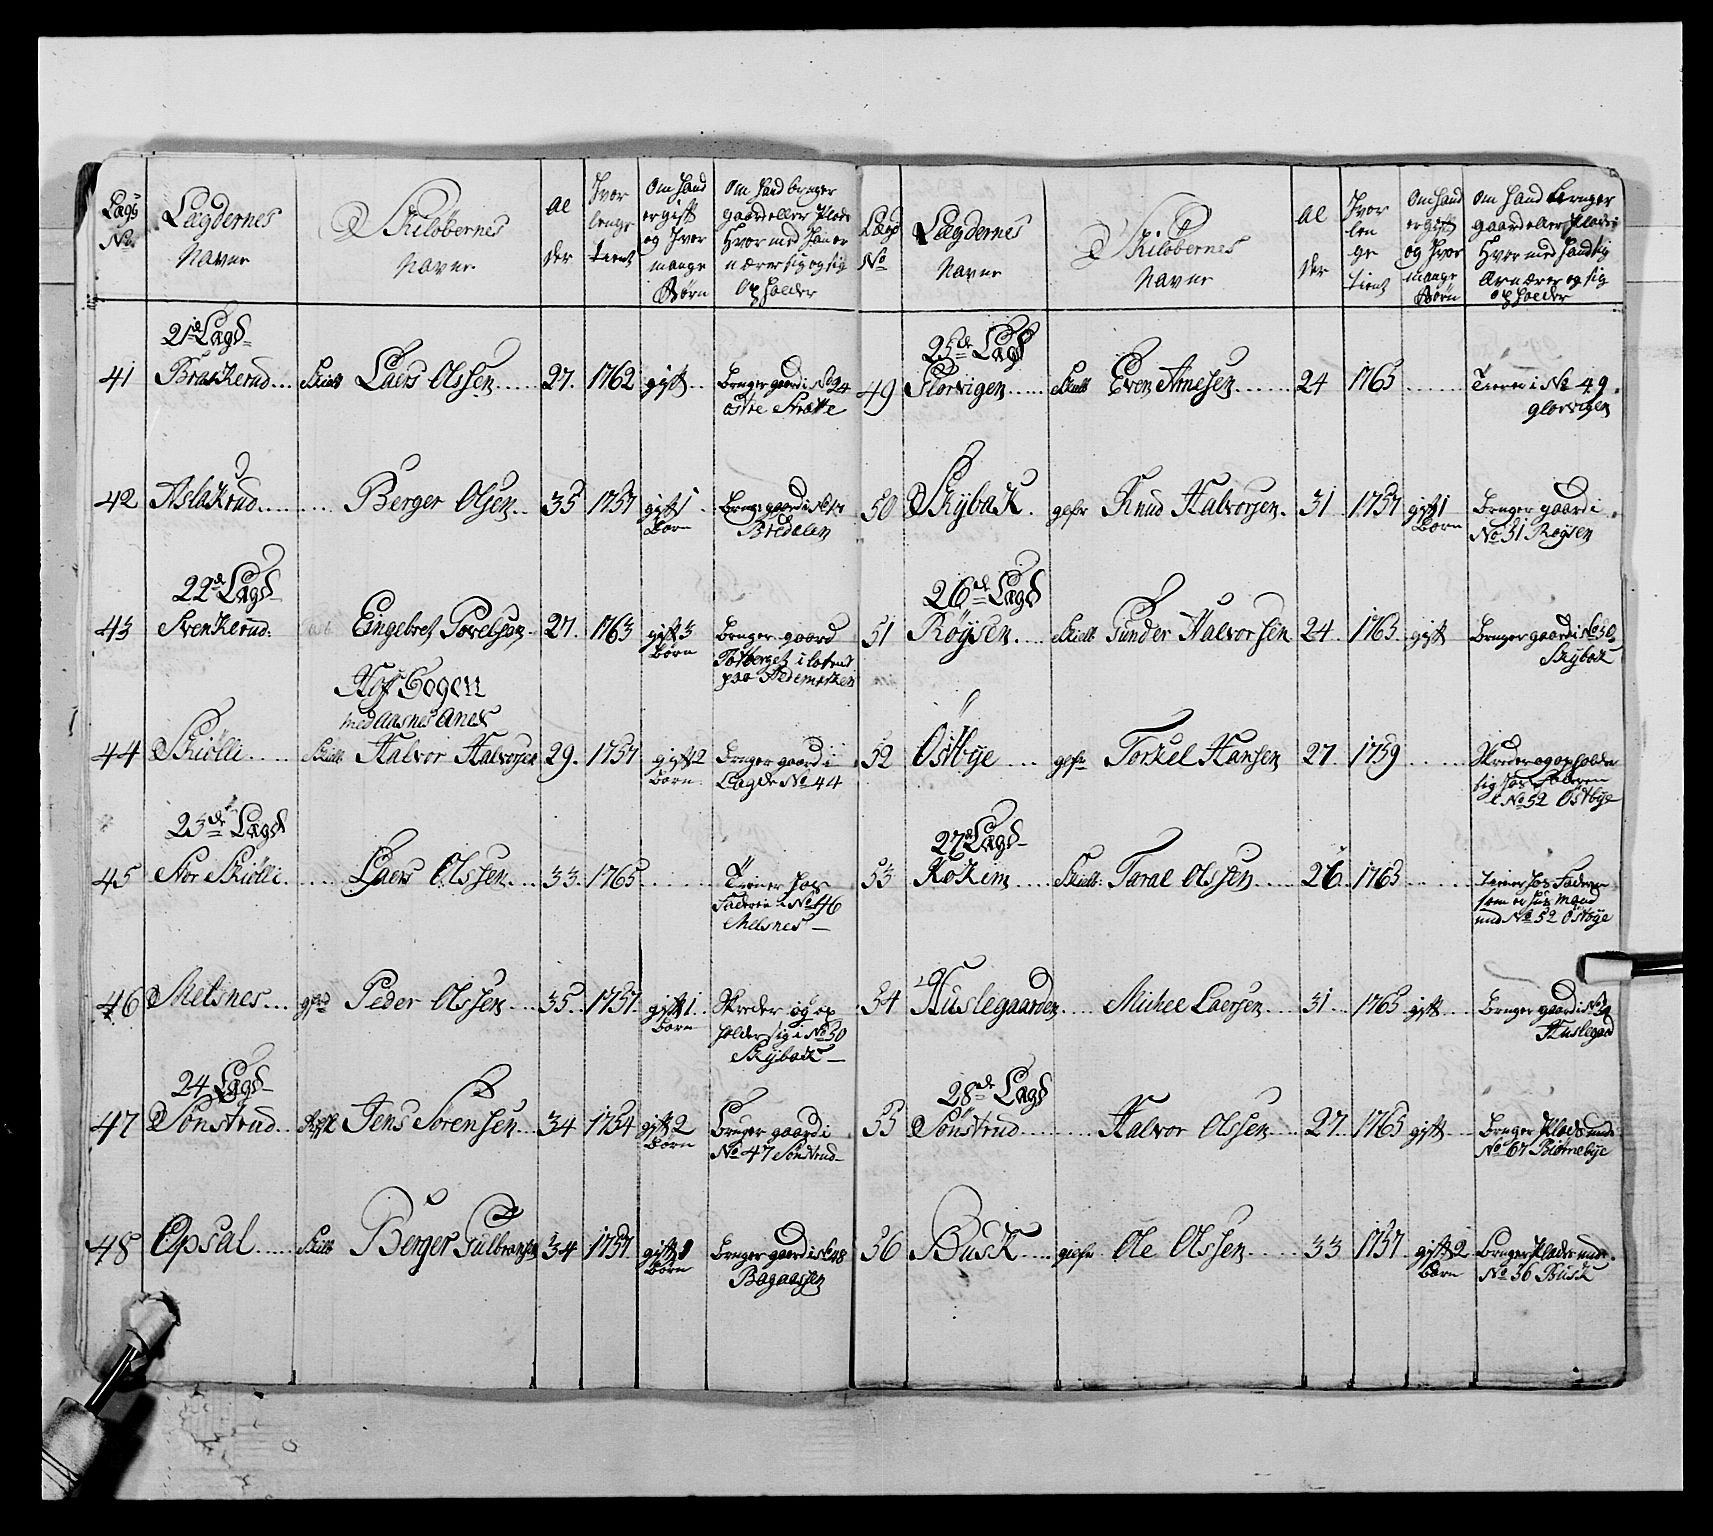 Lægs No. | Lægdernes Navne | Skilöbernes Navne | Al der | Hvor lenge tient | Om hand er gift og hvor mange Börn | Om hand bruger gaard eller Plads Hvor med han er nærer sig og sig Opholder
21de Lægd
41 Braskerud.... Skield Laers Olssen..... 27. 1762 gift... Bruger gaard i
östre
42 Aslakrud...... Berger Olsen.. 35 1757 gift 1 Börn Bruger gaard i
Bredalen
22de Lægd
43 Svenkerud. Eingebret Povelsen. 27. 1763 gift 3 Börn Bruger gaard
i
paa Hedemarken
44 Skiölli..... Skield Halvor Halvorsen 29. 1757 gift 2 Börn Bruger gaard i
Lægde No 44
23de Lægd
45 Nor Skiölli. Laers Olssen.... 33. 1765 Tiener hos
Faderen i No 46
Melsnes
46 Melsnes... gefrd Peder Olssen... 35. 1757. gift 1 Börn Skreder og op
holder sig i No 50
Skÿbak
24 Lægd
47 Sönstrud.. Jens Sörensen... 34 1754 gift 2 Börn Bruger gaard i
No 47 Sönstrud
48 Opsal..... Skield Berger Gulbransen 34 1757. gift Börn Bruger gaard i No 48
Bagaassen
Lægd No | Lægdernes Navne | Skilöbernes Navne | Al der | Hvor len ge tient | Om hand er gift og hvor mange Börn | Om hand bruger gaard eller Plads Hvor med hand sig Ernærer og sig opholder
25de Lægd
49 Glorvigen...... Skield Even Arnesen... 24 1765 Tiener i No 49
glorvigen
50 Skÿbak. gefr Knud Halvorsen. 31 1757 gift 1 Börn Bruger gaard i
No 51 Röÿsen
26de Lægd
51 Röÿsen.... Skield Gunder Halvorsen 24 1763 gift Bruger gaard i No 50
Skÿbak
52 Östbÿe.... gefr Torkel Hansen 27. 1759 Skreder og opholder
sig hos Faderen
i No 52 Östbÿe
27de Lægd
53 Kokim..... Skield. Taral Olssen..... 26. 1763 Tiener hos Faderen
som er huus mand
und No 52 Östbÿe
54 Huslegaarden Michel Laersen.... 31 1765 gift.. Bruger gaard i No 54
Huslegard
28de Lægd
55 Sönstrud Halvor Olssen... 27. 1765 gift.... Bruger Plads unde
No 67 Biörnebÿe
56 Busk.... gefr Ole Olssen..... 33 1757 gift 2 Börn Bruger Plads unde
No 56 Busk